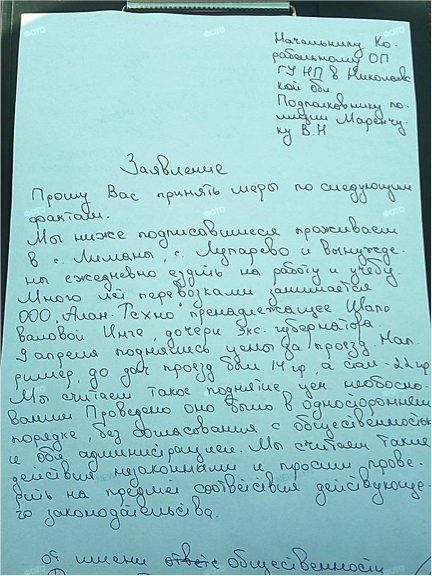 Начальнику Ко-
рабельному ОП
ГУ НП в Николаевс
кой обл.
Подполковнику по-
лиции Маренчу-
ку В.Н
Заявление
Прошу Вас принять меры по следующим
фактам.
Мы ниже подписавшиеся проживаем
в с. Лиманы, с. Лупарево и вынужде-
ны ежедневно ездить на работу и учебу.
Много лет перевозками занимается
ООО, Алан-Техно пренадлежащее
вановой Инге, дочери экс. губернатора.
9 апреля поднялись цены за проезд. Нап
ример, до дач проезд был 14 гр, а стал - 22 гр
Мы считаем такое поднятие цен необосно-
ванным Проведено оно было в одностороннем
порядке, без согласования с общественностью
и администрацией. Мы считаем такие
действия незаконными и просим прове-
рить на предмет соответствия действующе-
го законодательства.
от имени общественности